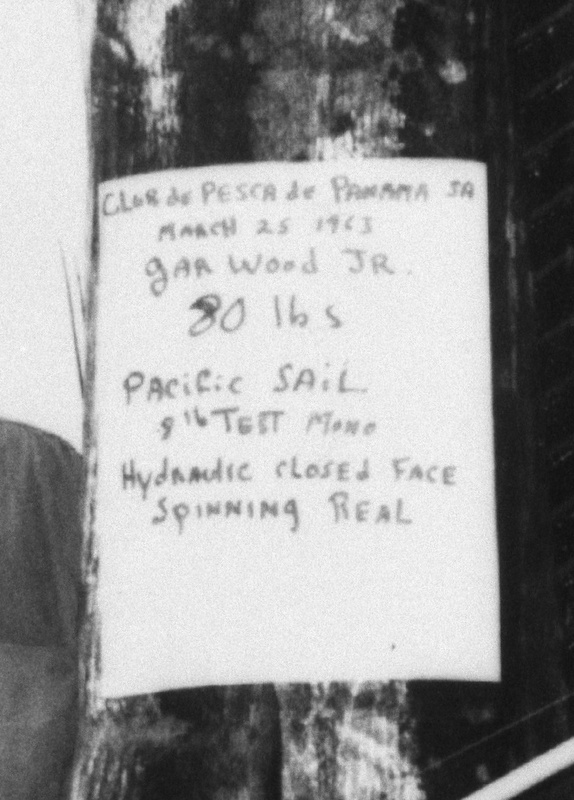 CLUB de PESCA de PANAMA SA
MARCH 25 1963
gAR Wood JR.
80 lbs
PACiFic SAiL
8 lb TEST Mono
HydRAulic closEd FACE
SpiNNiNg REAL